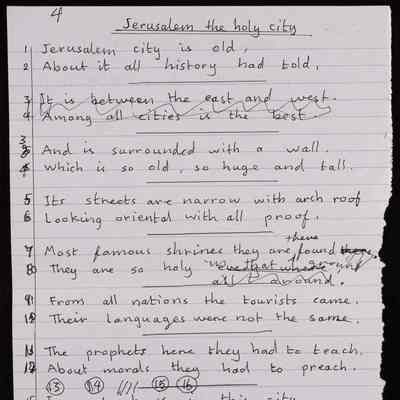 4
Jerusalem the holy city
1 Jerusalem city is old,
2 About it all history had told.
3 It is between the east and west.
4 Among all cities is the best.
3 And is surrounded with a wall.
4 Which is so old, so huge and tall.
5 Its streets are narrow with arch roof
6 Looking oriental with all proof.
7 Most famous shrines they are there found
8 They are so holy
all around.
9 From all nations the tourists came.
Their languages were not the same.
11 The prophets here they had to teach.
12 About morals they had to preach.
13 14 15 16
this city